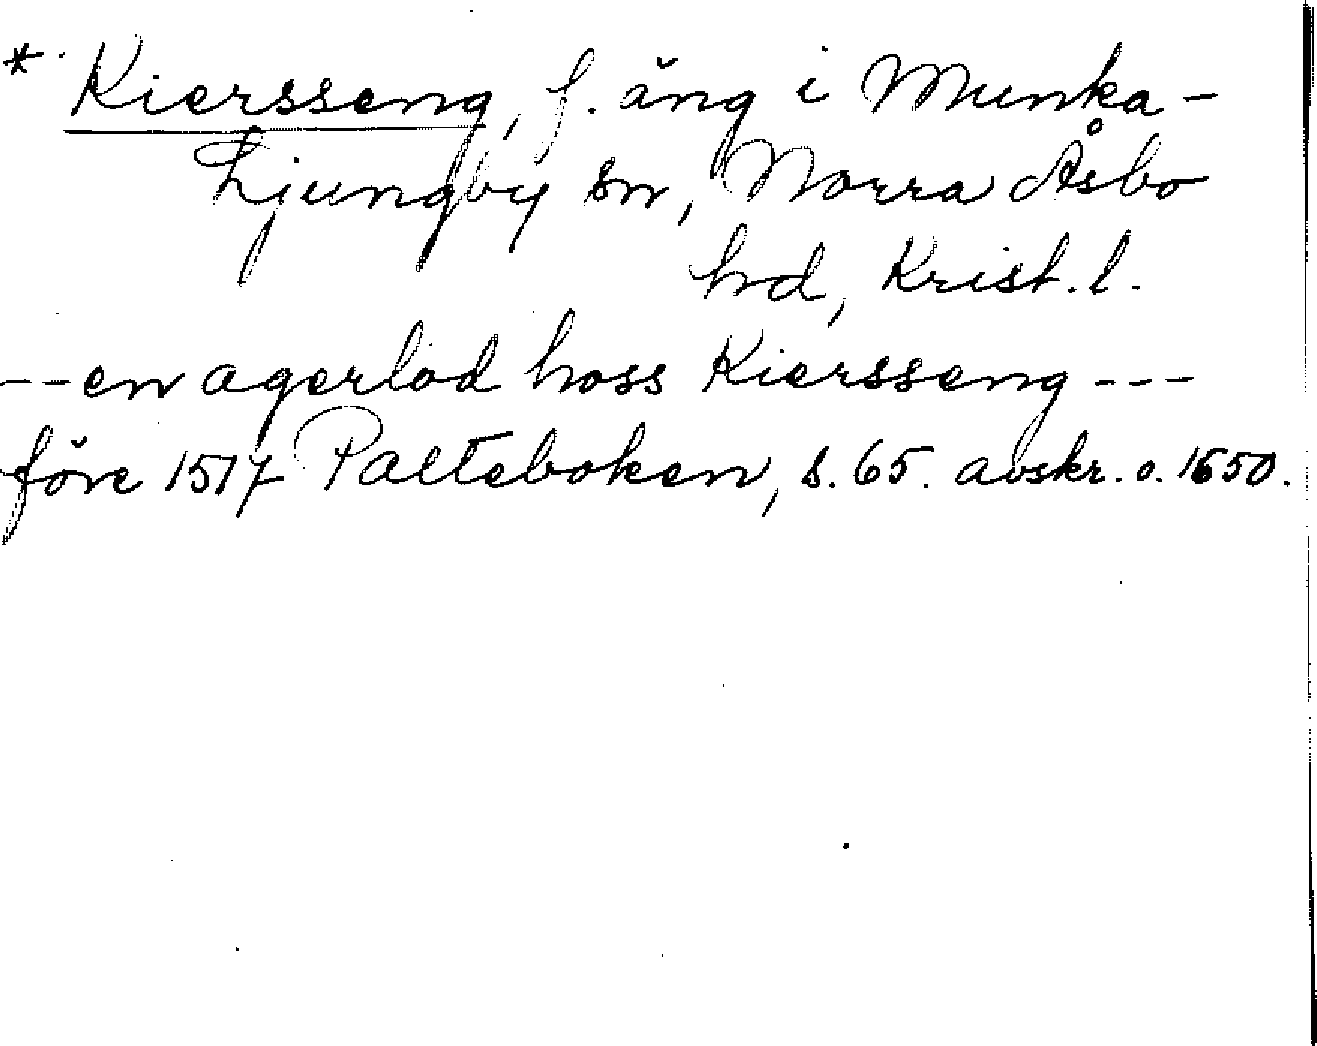 * Kiersseng, f. äng i Munka-
Ljungby sn, Norra Åsbo
hd, Krist. l.
--en agerlod hoss Kiersseng---
före 1517 Palteboken, s. 65. avskr. o. 1650.